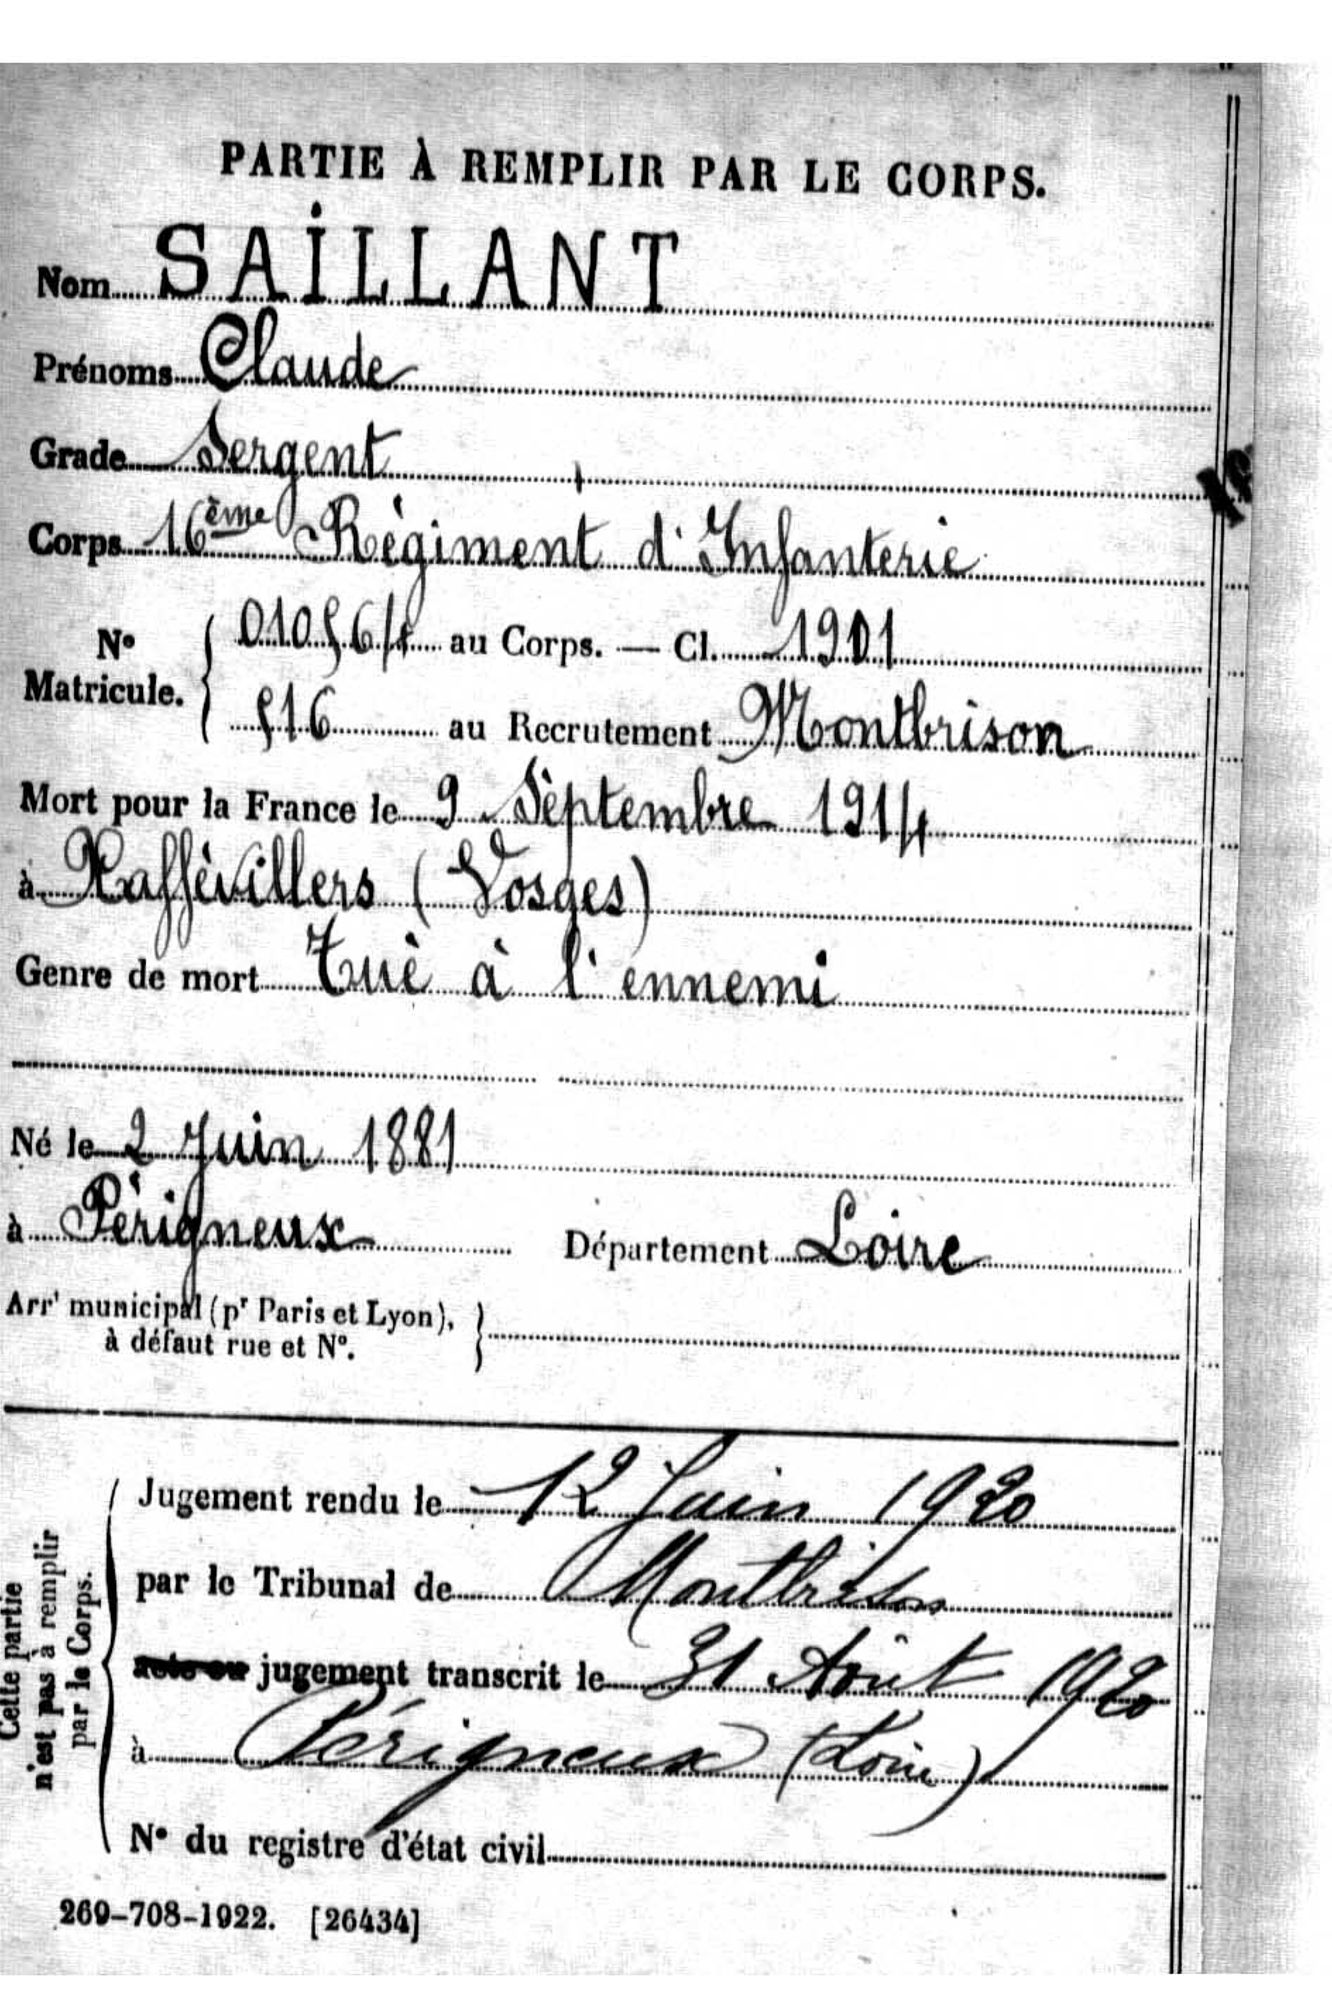 PARTIE À REMPLIR PAR LE CORPS.
Nom SAILLANT
Prénoms Claude
Grade Sergent
Corps 16ème Régiment d'Infanterie
No Matricule. { 01056/4 au Corps. — Cl. 1901
516 au Recrutement Montbrison
Mort pour la France le 9 Septembre 1914
à Xaffévillers (Vosges)
Genre de mort Tué à l'ennemi
Né le 2 Juin 1881
à Périgneux Département Loire
Arrt municipal (pr Paris et Lyon), }
à défaut rue et No.
Cette partie
n'est pas à remplir
par le Corps.
Jugement rendu le 12 Juin 1920
par le Tribunal de Montbrison
acte ou jugement transcrit le 31 Août 1920
à Périgneux (Loire)
No du registre d'état civil
269-708-1922. [26434]